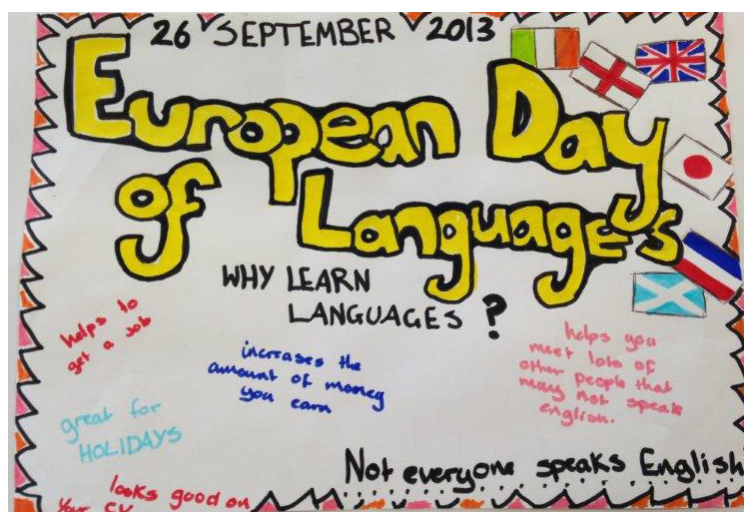 26 SEPTEMBER 2013
European Day
of Languages
WHY LEARN
LANGUAGES ?
helps to
get a job
increases the
amount of money
you earn
helps you
meet lots of
other people that
may not speak
english.
great for
HOLIDAYS
Not everyone speaks English
looks good on
your CV